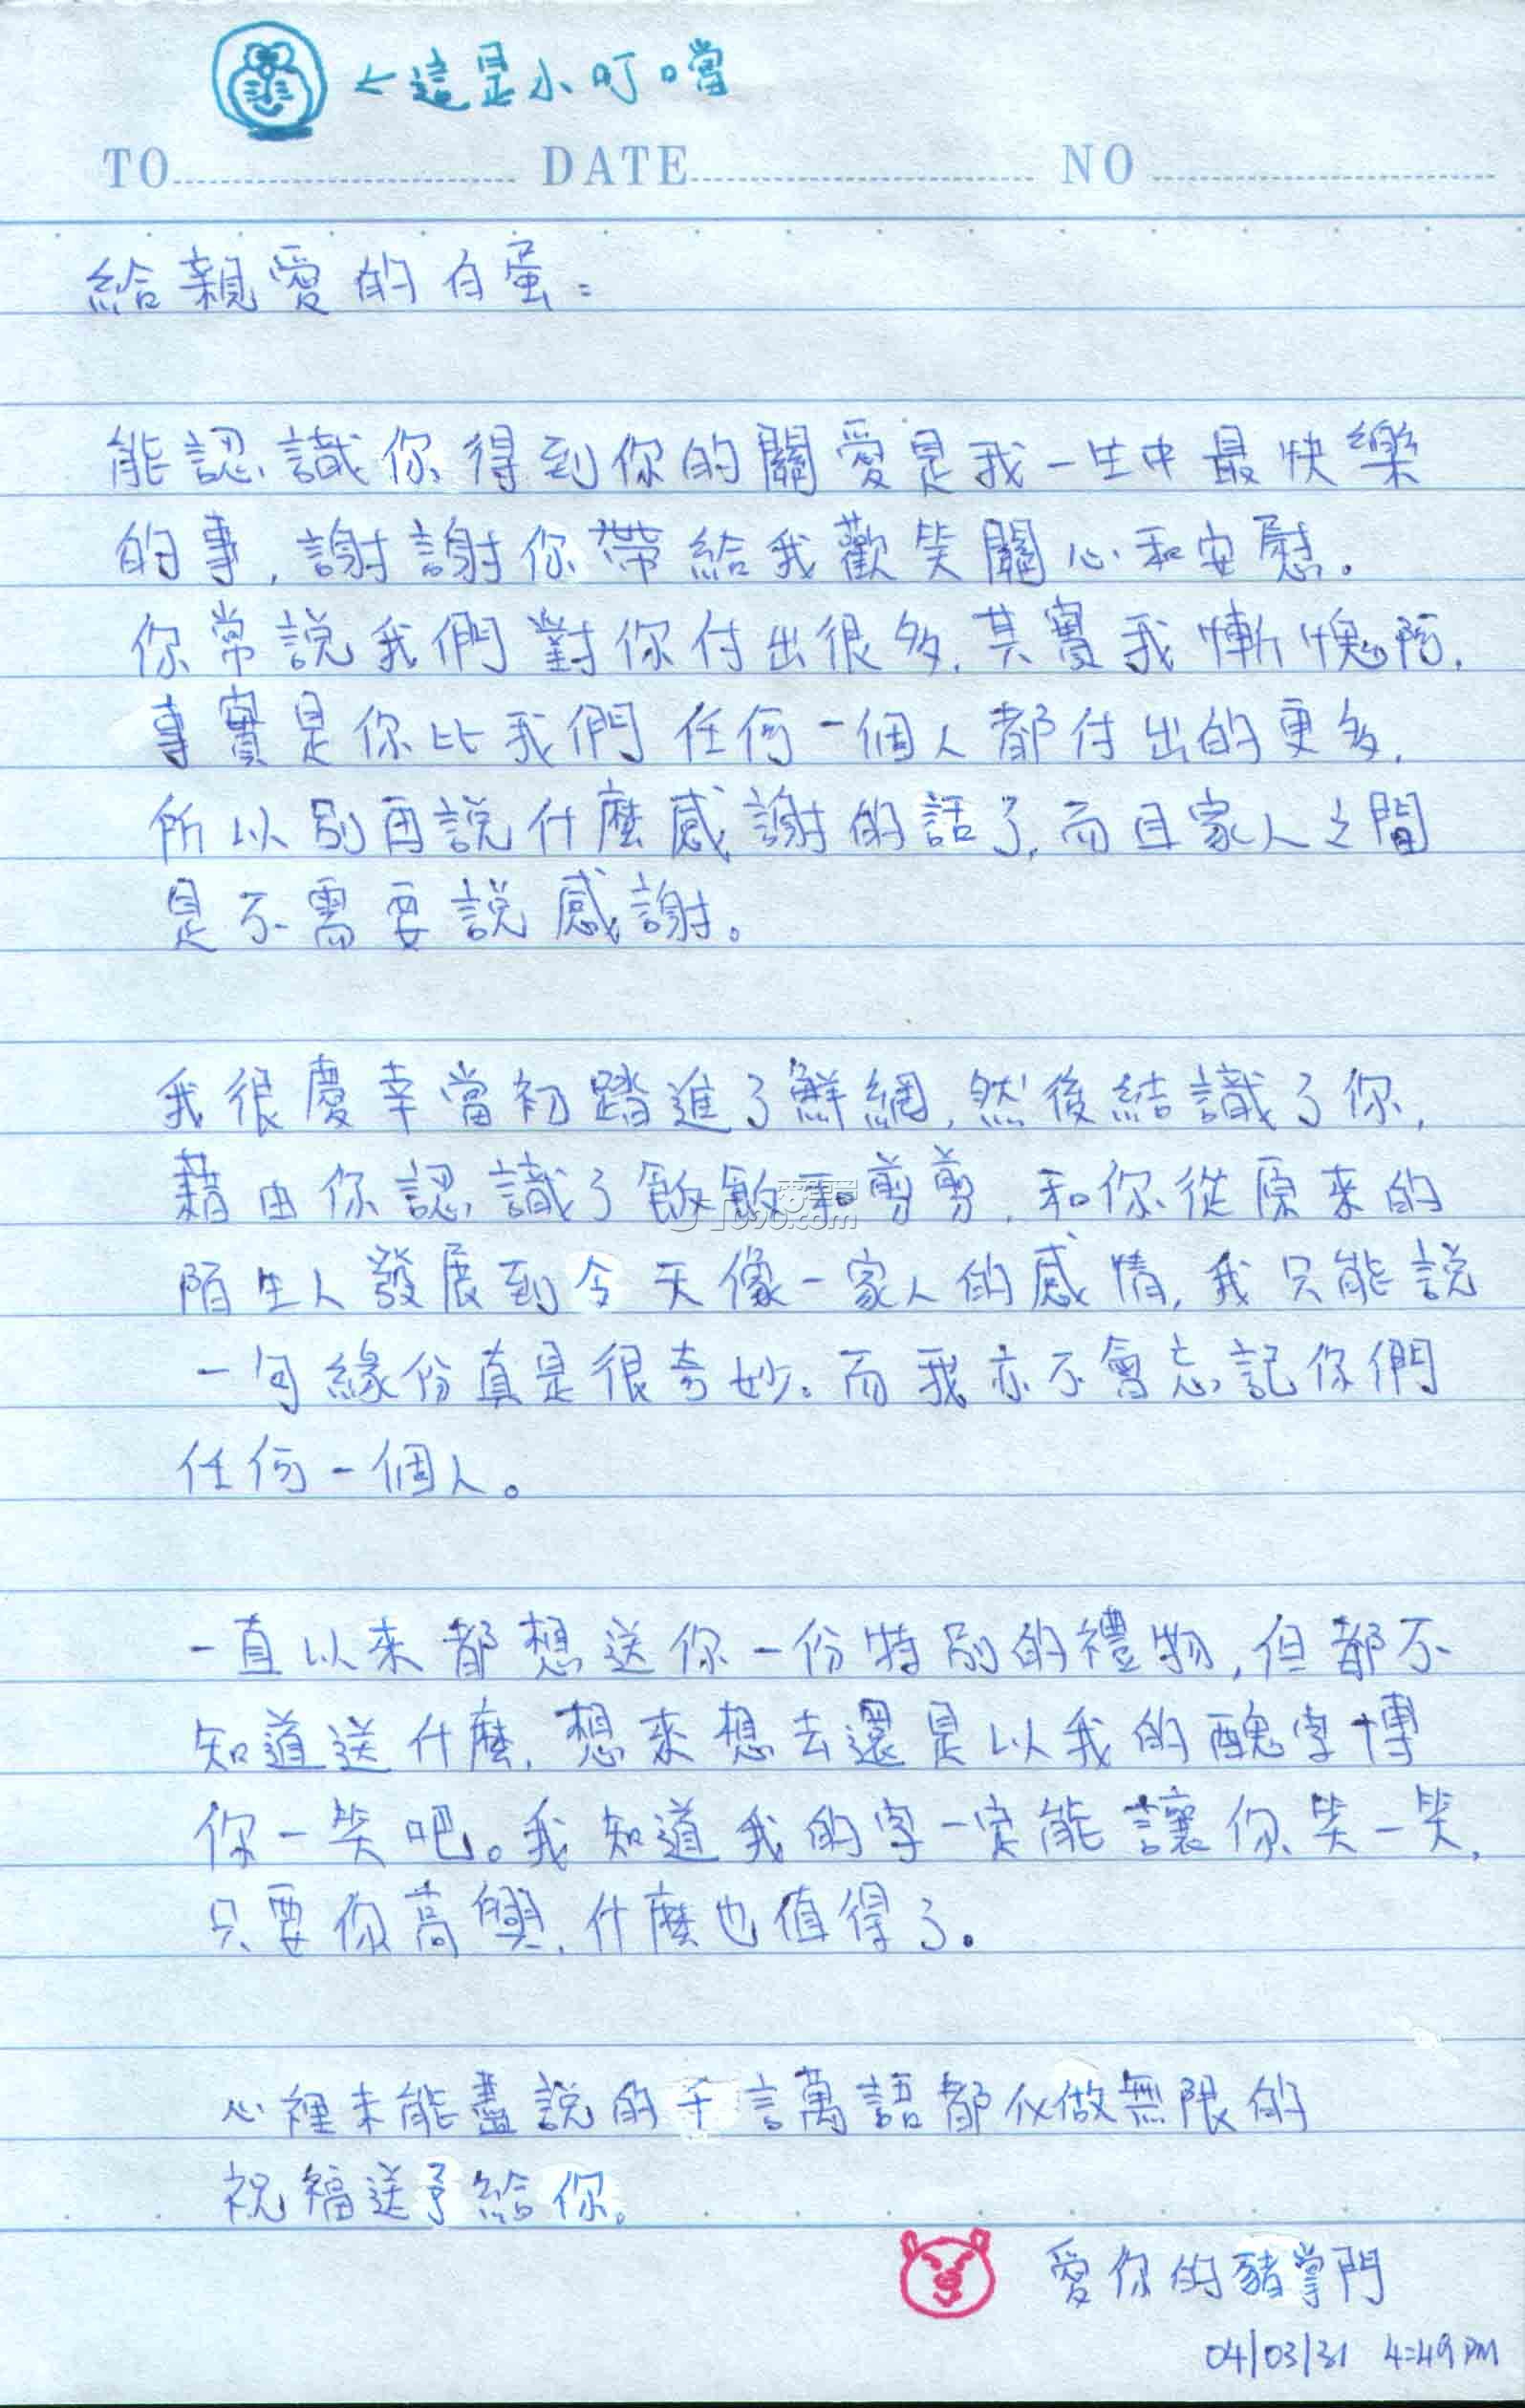 ←這是小叮噹
TO DATE NO
給親愛的白蛋：
能認識你得到你的關愛是我一生中最快樂
的事，謝謝你帶給我歡笑關心和安慰。
你常說我們對你付出很多，其實我慚愧阿，
事實是你比我們任何一個人都付出的更多，
所以別再說什麼感謝的話了，而且家人之間
是不需要說感謝。
我很慶幸當初踏進了鮮網，然後結識了你，
藉由你認識了飯飯和剪剪，和你從原來的
陌生人發展到今天像一家人的感情，我只能說
一句緣份真是很奇妙。而我亦不會忘記你們
任何一個人。
一直以來都想送你一份特別的禮物，但都不
知道送什麼，想來想去還是以我的醜字博
你一笑吧。我知道我的字一定能讓你笑一笑，
只要你高興，什麼也值得了。
心裡未能盡說的千言萬語都化做無限的
祝福送予給你。
愛你的豬掌門
04/03/31 4:49PM